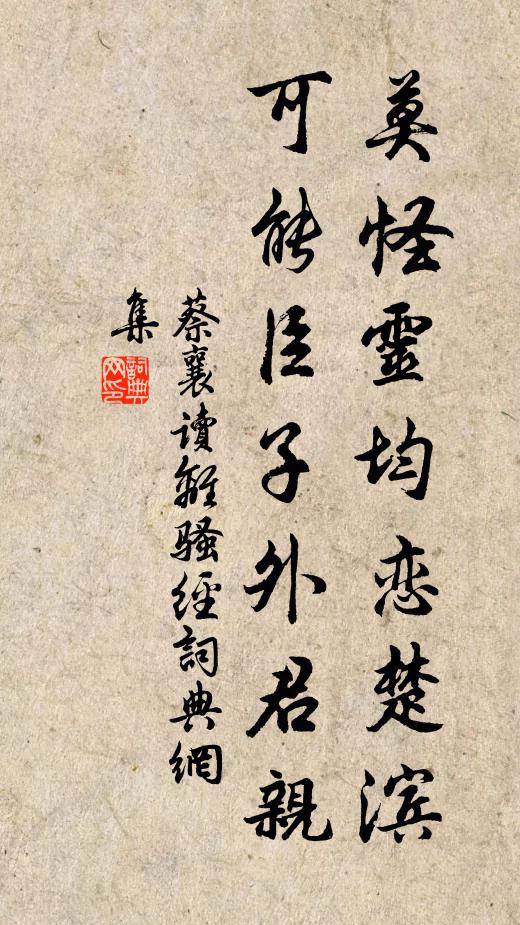 莫怪靈均恋楚滨
可能臣子外君親
蔡襄讀離骚經詞典網
集
詞典
网印